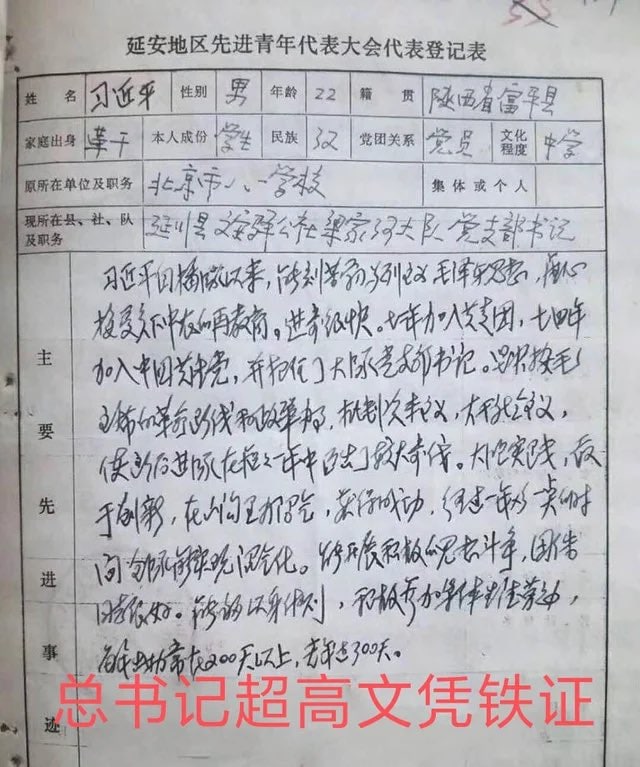 延安地区先进青年代表大会代表登记表
姓名 习近平 性别 男 年龄 22 籍贯 陕西省富平县
家庭出身 革干 本人成份 学生 民族 汉 党团关系 党员 文化程度 中学
原所在单位及职务 北京市八一学校 集体或个人
现所在县、社、队及职务 延川县文安驿公社梁家河大队党支部书记
主要先进事迹
习近平同 以来,能刻苦学习马列主义毛泽东思想,虚心
接受贫下中农的再教育。进步较快。七 年加入共青团,七四年
加入中国共产党,并担任了大队党支部书记。 按毛
主席的革命路线和政策办事,批判资本主义,大干社会主义,
使 后进队在短短一年中迈出了较大步伐。大胆实践,敢
于创新,在 办沼气,获得成功,经过一年多一点的时
间全 实现沼气化。能开展积极的思想斗争,团结
同志很好。能够以身作则,积极参加集体生产劳动,
每年出勤常在200天以上,去年达300天。
总书记超高文凭铁证